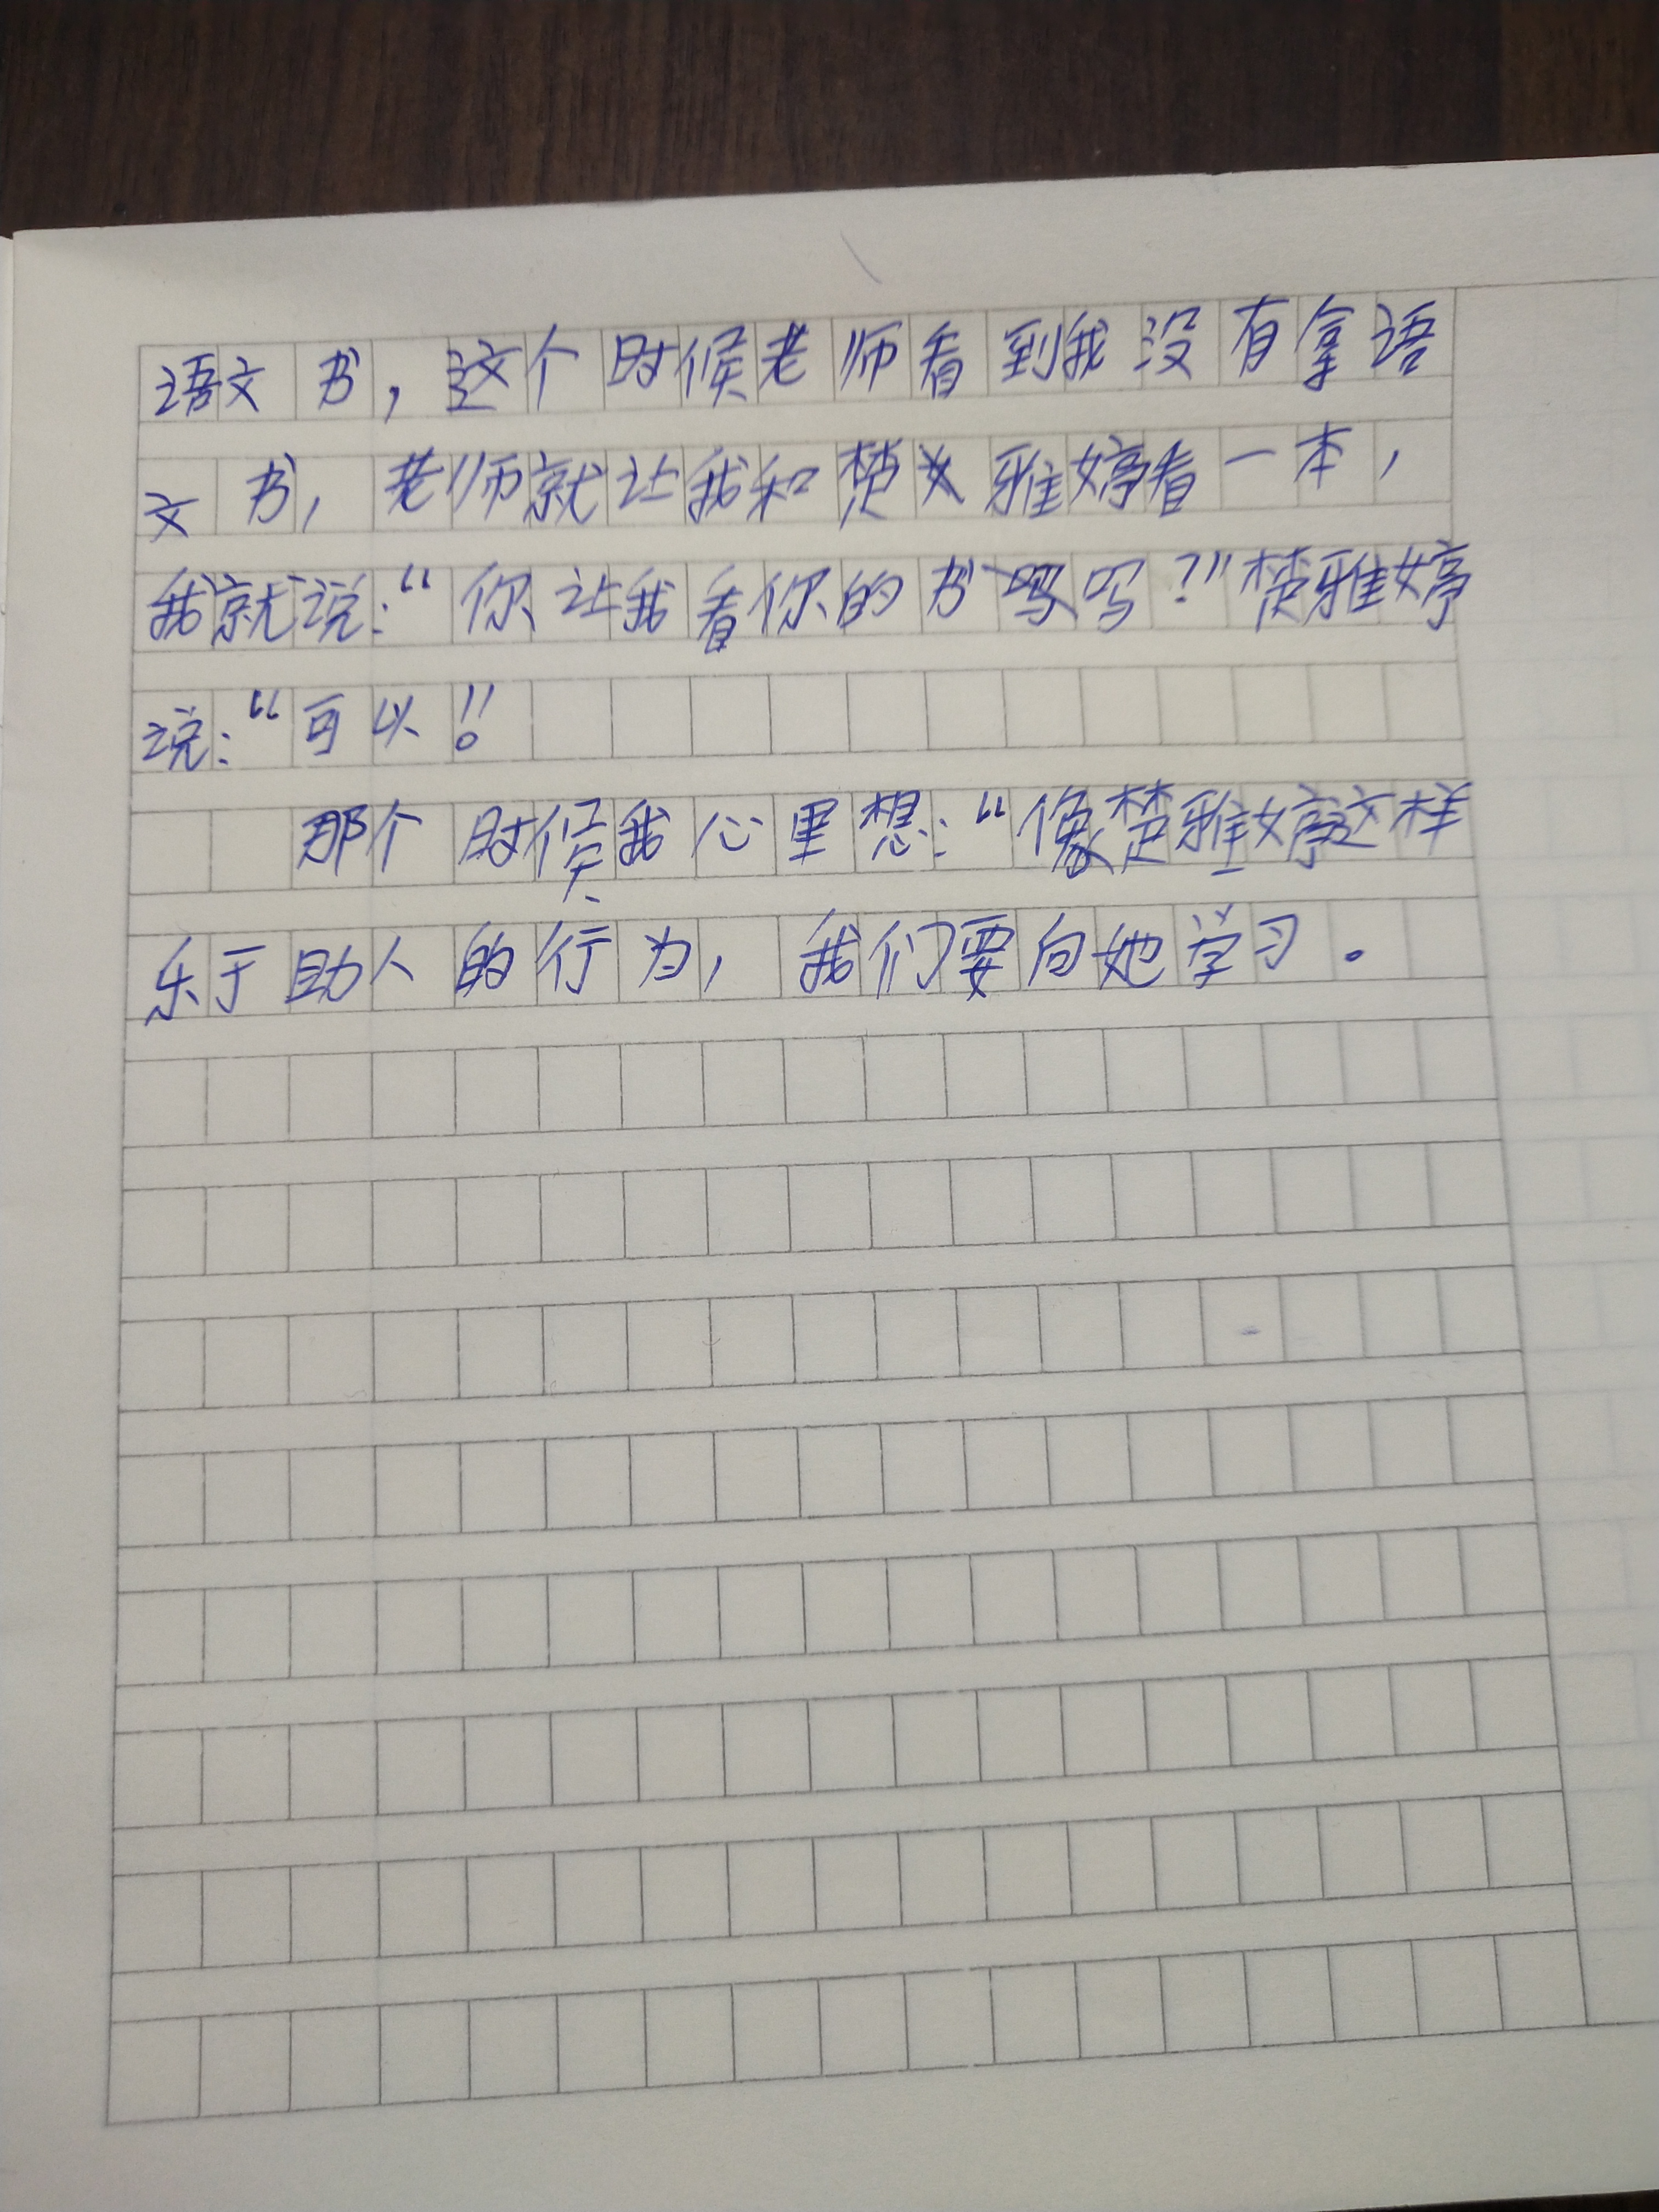 语文书，这个时候老师看到我没有拿语
文书，老师就让我和楚雅婷看一本，
我就说：“你让我看你的书吗？”楚雅婷
说：“可以！”
那个时候我心里想：“像楚雅婷这样
乐于助人的行为，我们要向她学习。